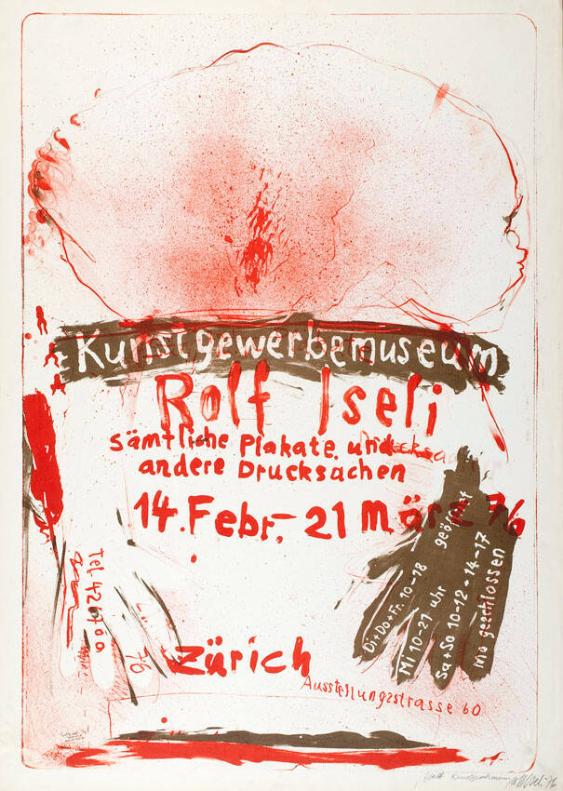 Kunstgewerbemuseum
Rolf Iseli
sämtliche Plakate und
andere Drucksachen
14. Febr.- 21 März 76
geöffnet
Di+Do+Fr. 10-18
Mi 10-21 uhr
Sa+So 10-12 + 14-17
Mo geschlossen
Tel. 42 67 00
76
Zürich
Ausstellungsstrasse 60